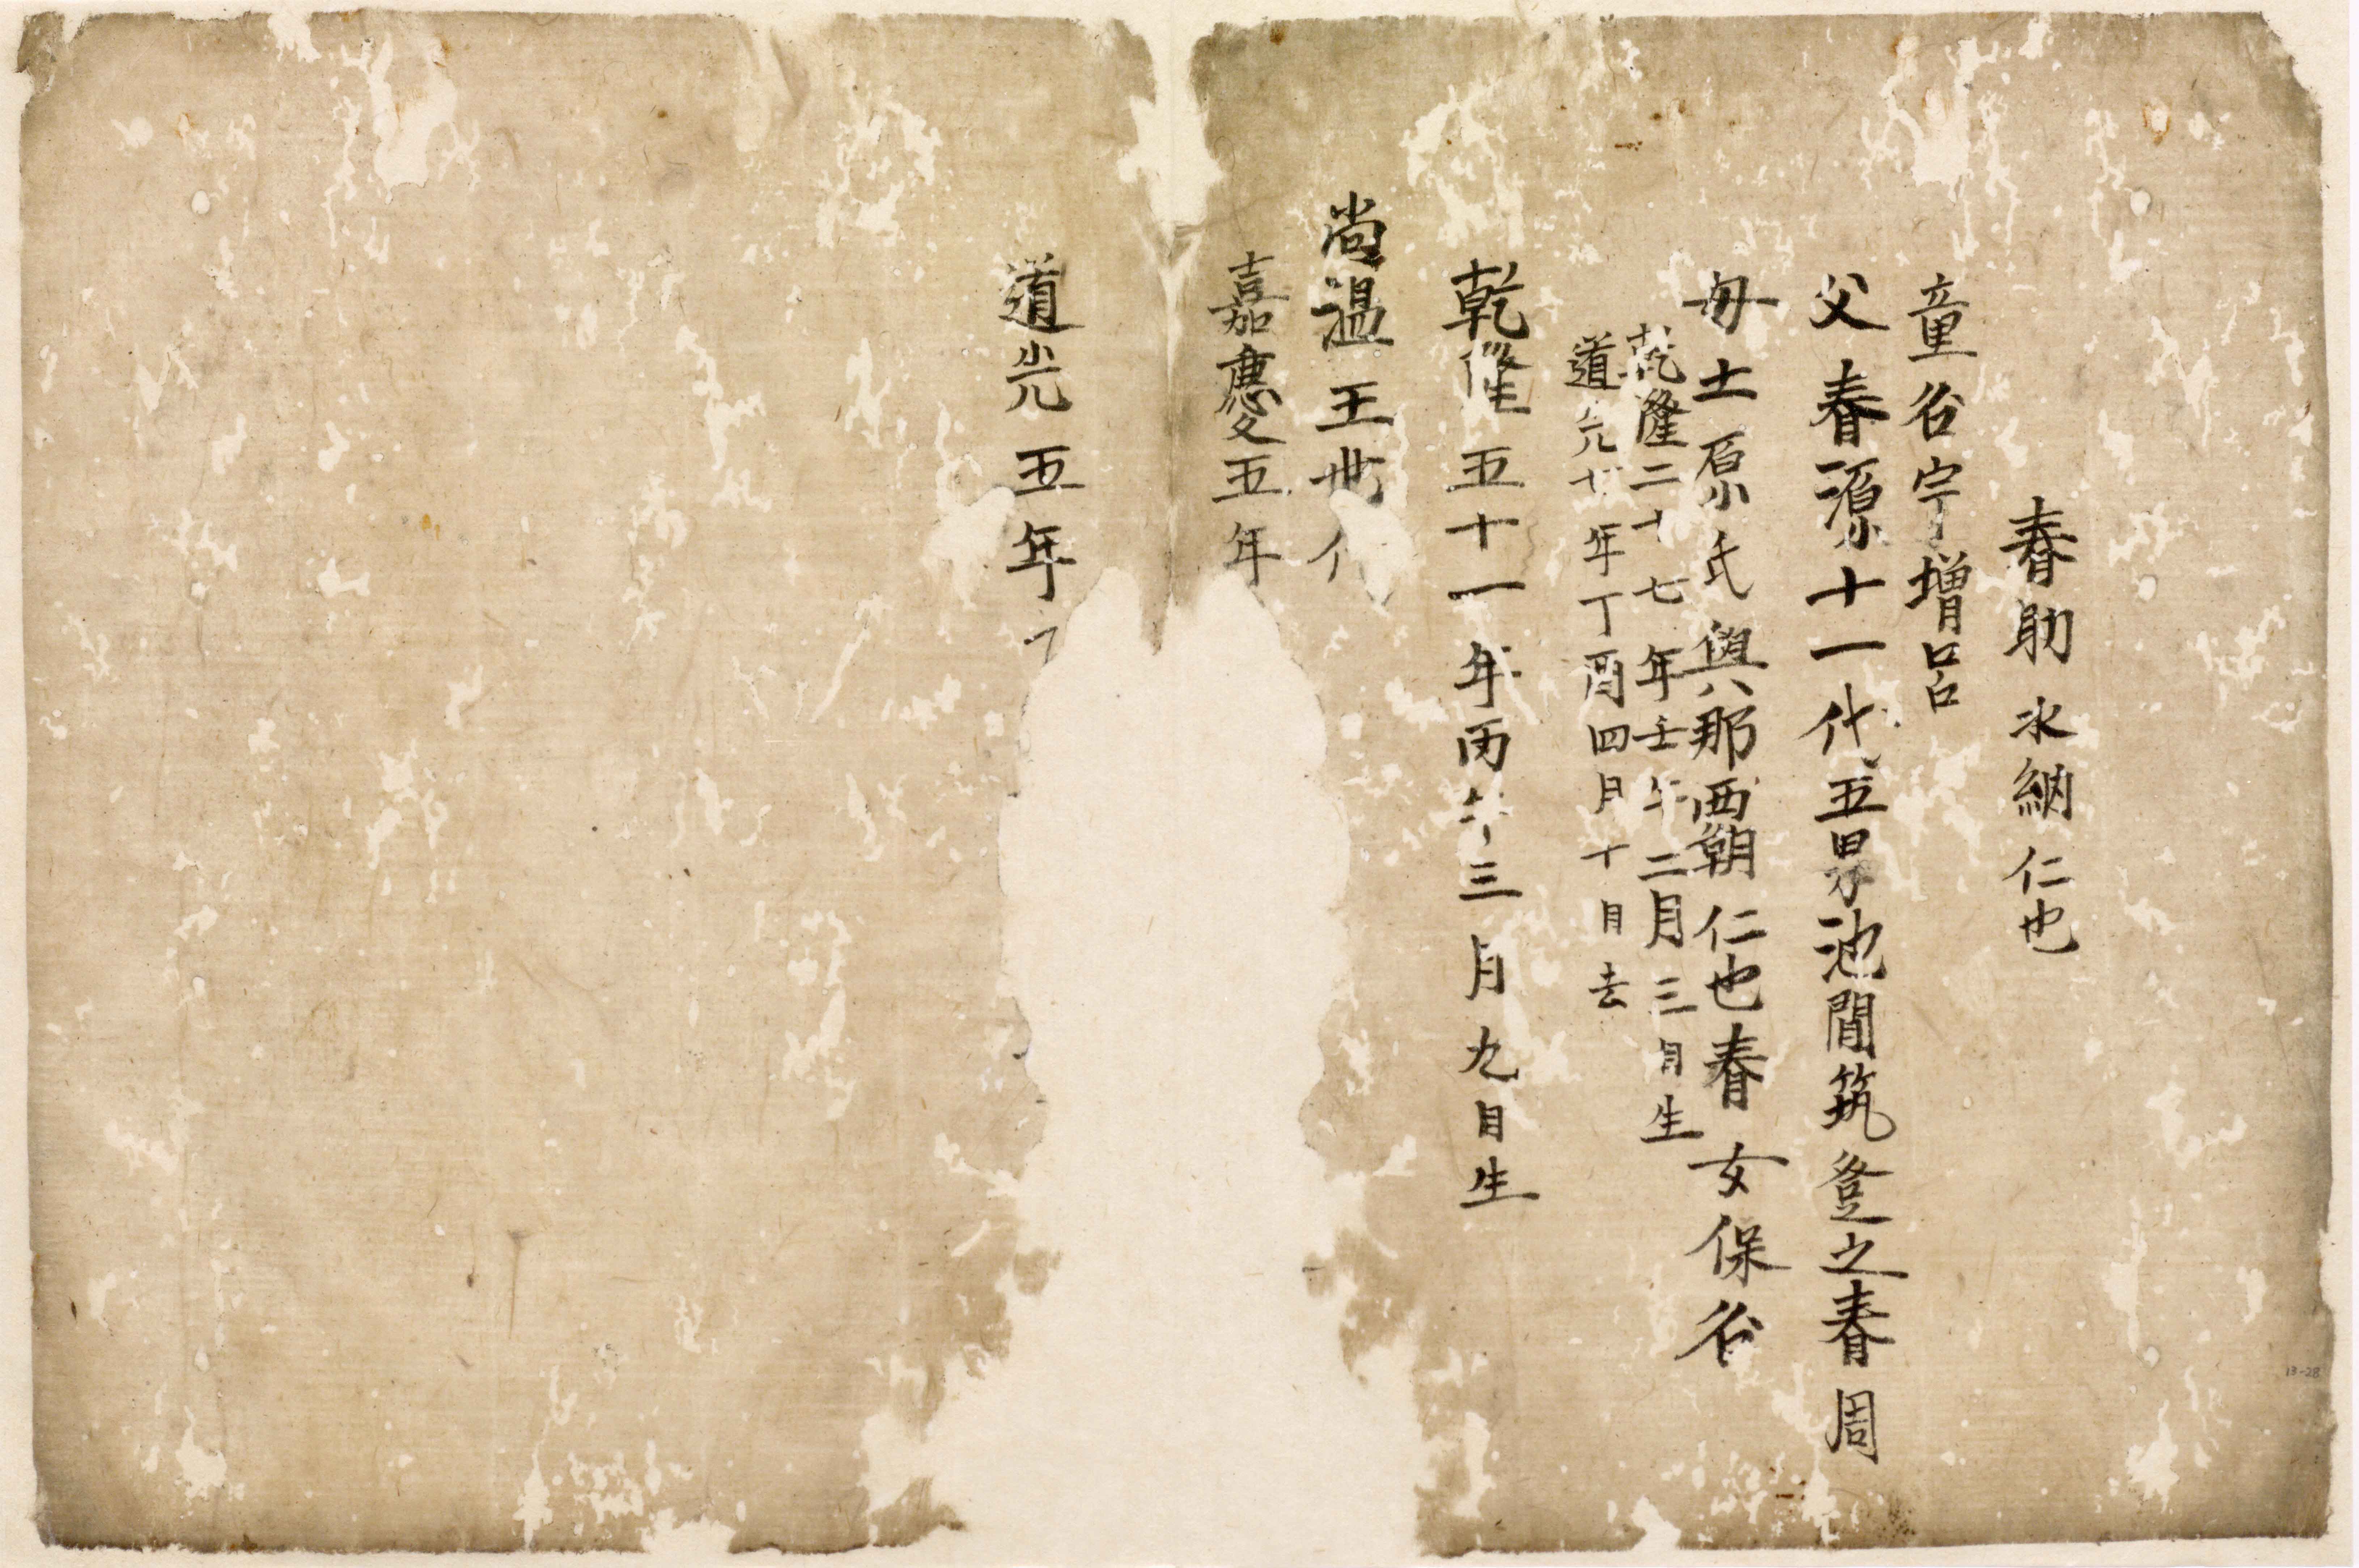 春助 水納 仁也
童名宇增呂
父春源十一代五男池間筑登之春周
母士原氏與那覇仁也春女保名
乾隆二十七年壬午二月三日生
道光十 年丁酉四月十日去
乾隆五十一年丙午三月九日生
尚温王世代
嘉慶五年
道光五年
13-28